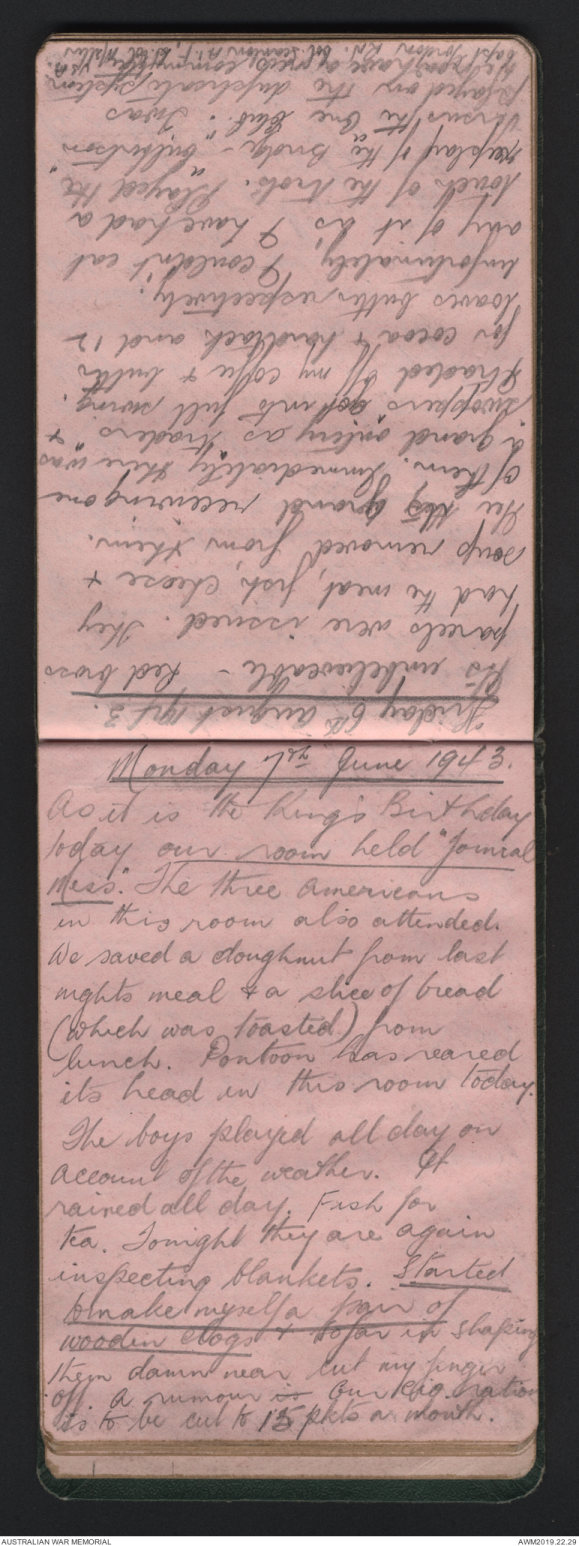 Friday 6th August 1943.
It's unbelieveable - Red Cross
parcels were issued. They
had the meat, fish, cheese &
soup removed from them.
Gee they grand receiving one
of them. Immediately there was
a grand outing as "traders &
swoppers" got into full swing.
I traded off my coffee & butter
for cocoa & hardtack and 12
loaves butter respectively.
Unfortunately I couldn't eat
any of it as I have had a
touch of the trots. Played the
replay of the "Bridge - Culbertson
versus the One Club". I was
played on the duplicate system
Monday 7th June 1943.
As it is the King's Birthday
today our room held "Formal
Mess". The three Americans
in this room also attended.
We saved a doughnut from last
nights meal & a slice of bread
(which was toasted) from
lunch. Pontoon has reared
its head in this room today.
The boys played all day on
account of the weather. It
rained all day. Fish for
tea. Tonight they are again
inspecting blankets. Started
to make myself a pair of
wooden clogs & so far in shaping
them damn near cut my finger
off. A rumour is our cig ration
is to be cut to 15 pkts a month.
AUSTRALIAN WAR MEMORIAL
AWM2019.22.29